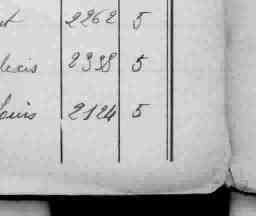 2262 5
lexis 2338 5
Louis 2124 5